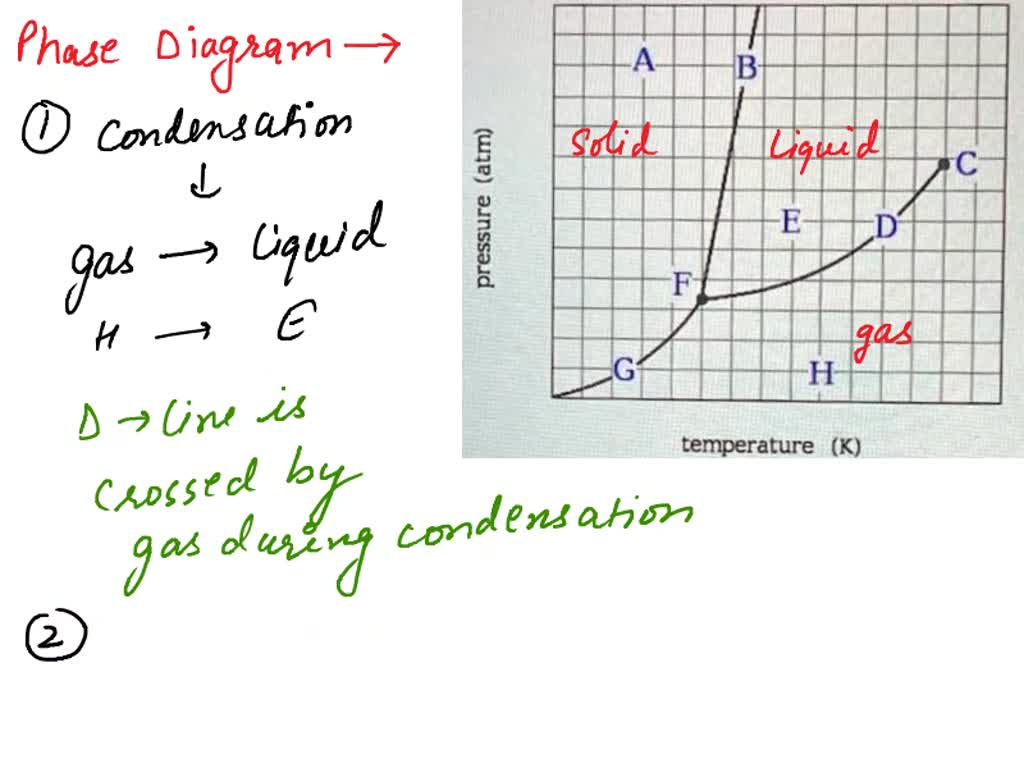 Phase Diagram →
① Condensation
↓
gas → Liquid
H → E
D → Line is
crossed by
gas during condensation
②
A
B
Solid
Liquid
C
E
D
F
gas
G
H
pressure (atm)
temperature (K)